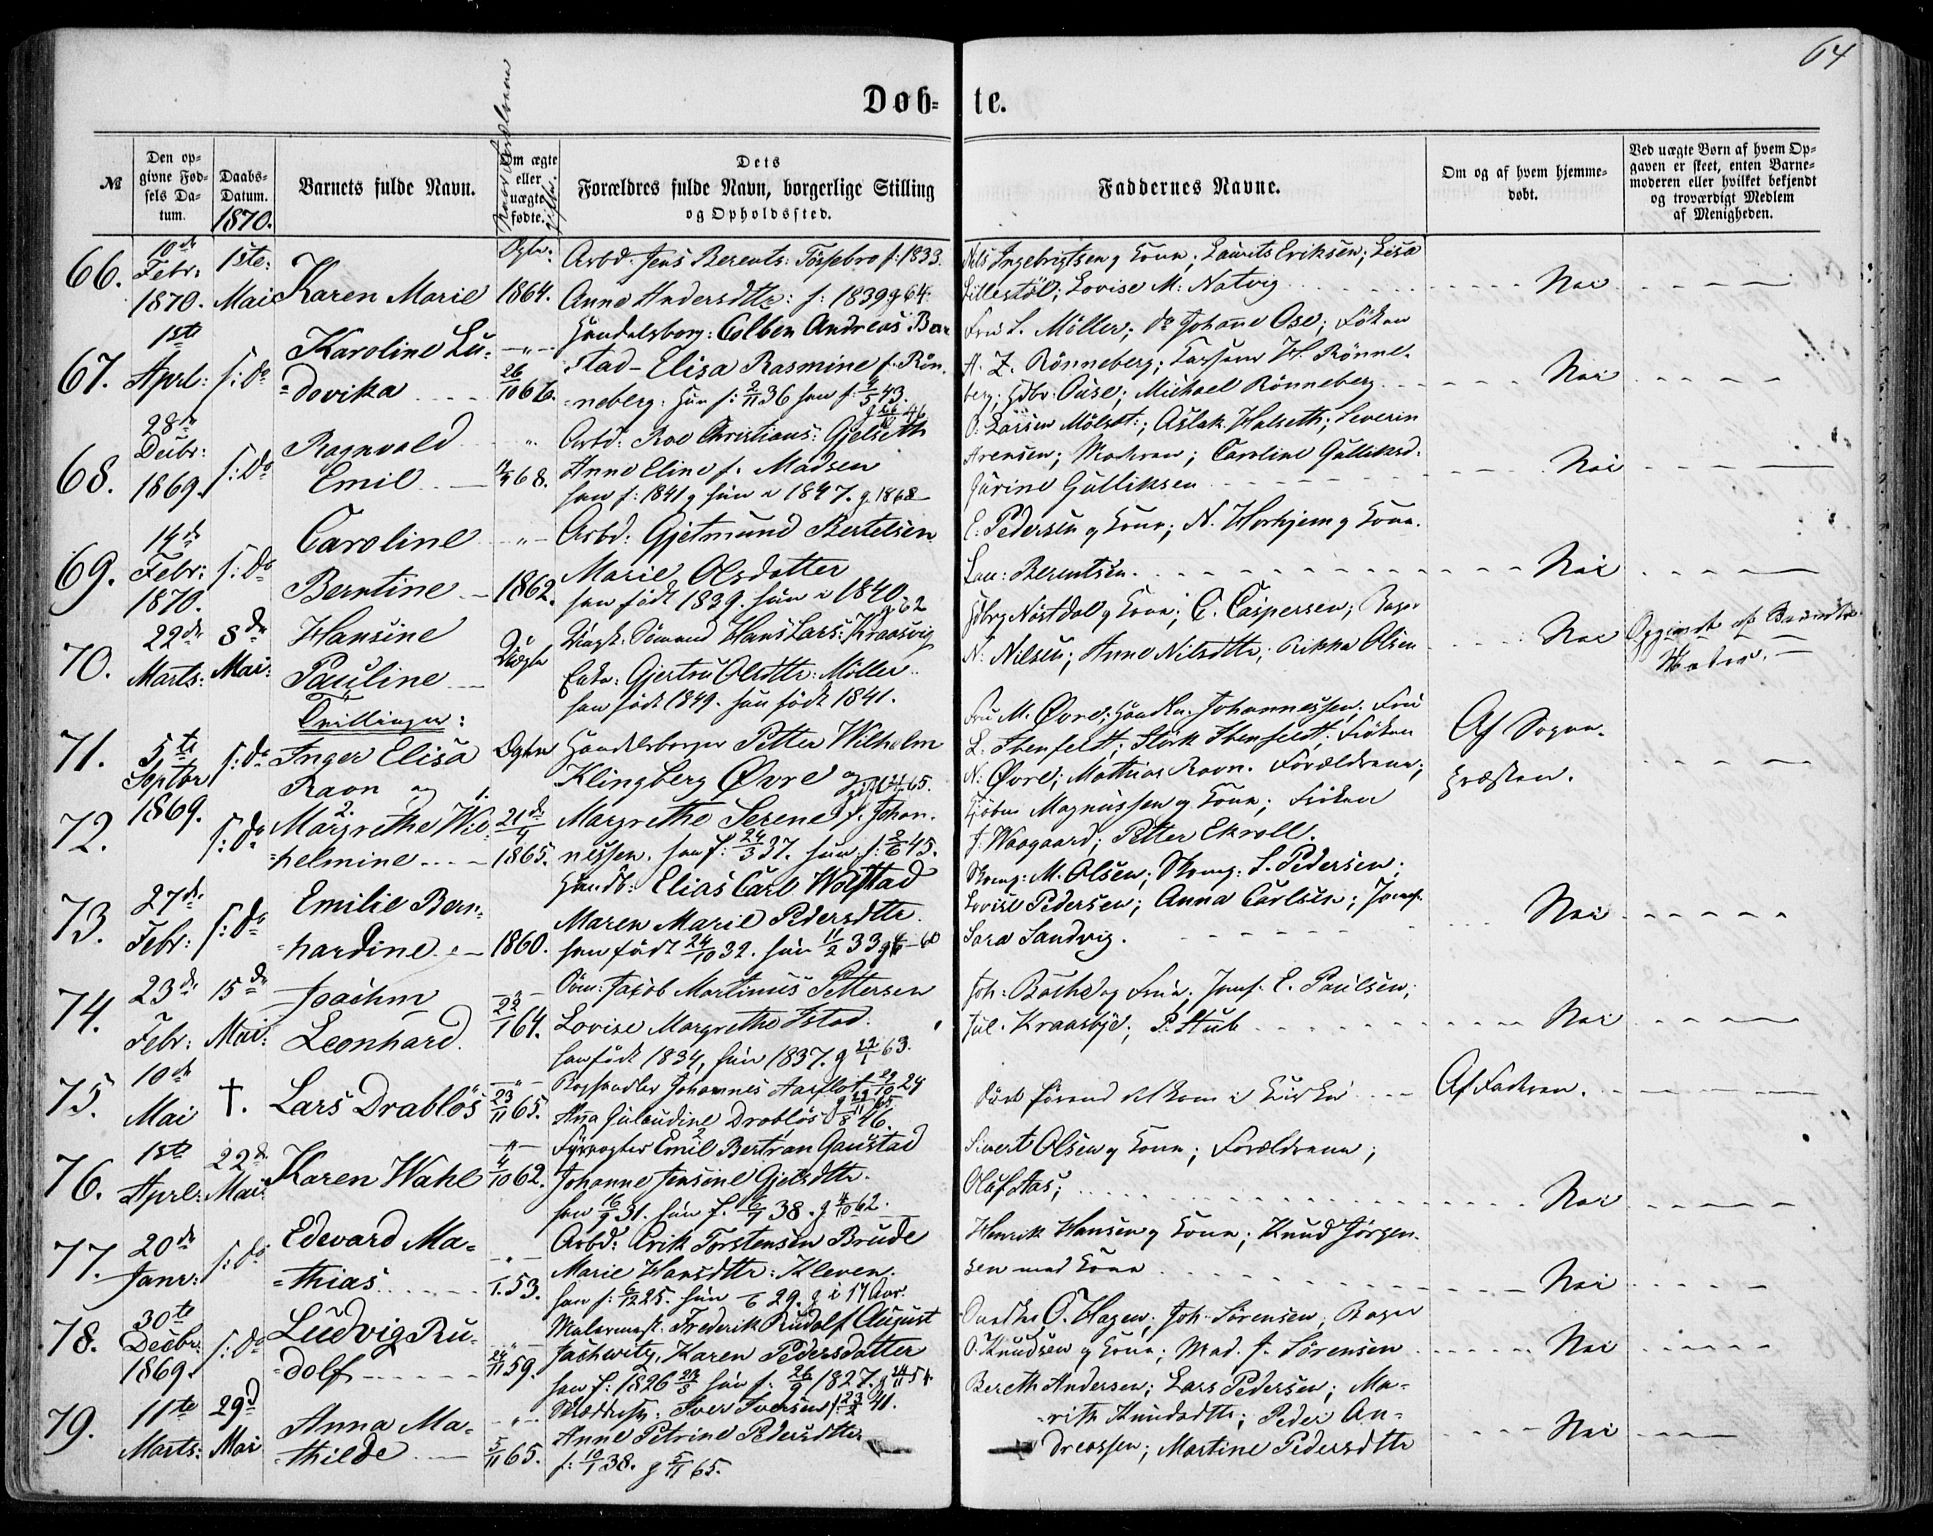 64
Døb- te.
№
Den op-
givne Fød-
sels Da-
tum.
Daabs-
Datum.
1870.
Barnets fulde Navn.
Om ægte
eller
uægte
fødte.
Dets
Forældres fulde Navn, borgerlige Stilling
og Opholdssted.
Faddernes Navne.
Om og af hvem hjemme-
døbt.
Ved uægte Børn af hvem Op-
gaven er skeet, enten Barne-
moderen eller hvilket bekjendt
og troværdigt Medlem
af Menigheden.
66.
10de
Febr:
1870.
1ste
Mai
Karen Marie
1864.
Arbd: Jens Berents: f: 1833.
Anne Andersdttr: f: 1839 g 64.
Nils Ingebrigtsen g Kone; Laurits Eriksen; Lisa
Lillestøl; Lovise M: Natvig
Nei
67.
1ste
Aprl:
s: Do
Karoline Lu-
=dovika
26/10 66.
Handelsborg: Colben Andreas
stad - Elisa Rasmine f. Røn-
neberg: f: 2/11 36
Fru L. Møller; do Johanne Ose; Frøken
A. Z. Rønneberg; H. Rønne-
berg; Michael Rønneberg
Nei
68.
28de
Decbr:
1869.
s: Do
Ragnvald
Emil
68.
Arbd: Roe Christians: Gjelseth
Anne Eline f. Madsen
han f: 1841 g hun 1847. g. 1868
O. Larsen; Aslak Halseth; Severin
Arensen; Modren; Caroline Galliksd.
Jørine Galliksen
Nei
69.
14de
Febr:
1870.
s: Do
Caroline
Berntine
1862.
Arbd: Gjetmund Bertelsen
Marie Olsdatter
han født 1839. hun 1840.
g 62
E. Pedersen g Kone; N. Horhjem g Kone.
Berentsen.
Nei
70.
22de
Marts:
8de
Mai:
Hansine
Pauline
Uægte
Ungk: Sømand Hans Lars: Kraasvig
Enke: Gjertru Olsdttr: Møller
han født 1849. hun født 1841.
Nøstdal g Kone; C. Caspersen; Bager
N. Nilsen; Anne Nilsdttr; Rikka Olsen
Nei
Opgivet af
71.
5te
Septbr
1869.
s: Do
Tvillinger:
Inger Elisa
Ravn og 1.
Ægte
Handelsborger Petter Wilhelm
Klingberg Øvre og
Fru M. Øvre; Johannessen; Fru
L. Ibenfeldt; Størk Ibenfeldt; Frøken
N. Øvre; Mathias Ravn. Forældrene;
Af Sogne-
præsten.
72.
s: Do
2.
Margrethe Wil-
=helmine
21de/4
1865.
Margrethe Serene f. Johan-
nessen. han f: 24/3 37. hun f: 2/6 45.
Magnussen g Kone; Frøken
J. Waagaard; Petter Ekroll.
73.
27de
Febr:
s: Do
Emilie Bern-
=hardine
1860.
Handb: Elias Carl Wolstad
Maren Marie Pedersdttr.
han født 24/10 32. hun 11/2 33
M. Olsen; L. Pedersen;
Lovise Pedersen; Anna Carlsen; Jomf.
Sara Sandvig.
Nei
74.
23de
Febr:
15de
Mai:
Joachim
Leonhard.
64.
Jakob Martinus Pettersen
Lovise Margrethe Istad.
han født 1834, hun 1837. g 22/1 63.
Joh: Bathe og Frue; Jomf: E. Paulsen;
Jul. Kraasbye; P. Stub
Nei
75.
10de
Mai
†.
Lars Drabløs
23/11 65.
Johannes Aarflot
Drabløs
Død førend det kom i Kirken
Af Fadren.
76.
1ste
Aprl:
22de
Mai:
Karen Wahl
4/10 62.
Fyrvogter Emil Bertran Gaustad
Johanne Jensine Gjetsdttr.
han 16/9 31. hun f. 6/1 38. g 4/10 62.
Sivert Olsen g Kone; Forældrene;
Oluf Aas;
Nei
77.
20de
Janr:
s: Do
Edevard Ma-
=thias
53.
Arbd: Erik Torstensen Brude
Marie Hansdttr: Kleven.
han f: 6/12 25. hun 29. g i 17 Aar.
Henrik Hansen g Kone; Knud Jørgen-
sen med Kone
Nei
78.
30te
Decbr.
1869.
s: Do
Ludvig Ru-
=dolf
59.
Malermest. Frederik Rudolf August
Jachwitz, Karen Pedersdatter
han f: 1826 hun f: 26/9 1827.
O. Hagen; Joh. Sørensen; Bager
O. Knudsen g Kone; Mad. J. Sørensen
Nei
79.
11te
Marts:
29d
Mai
Anna Ma-
=thilde
5/11 65.
Iver Iversen 41.
Anne Petrine Pedersdttr
f: 10/1 38. g 5/11 65.
Bereth Andersen; Lars Pedersen; Ma-
-rith Knudsdttr; Peder An-
dreassen; Martine Pedersdttr
Nei